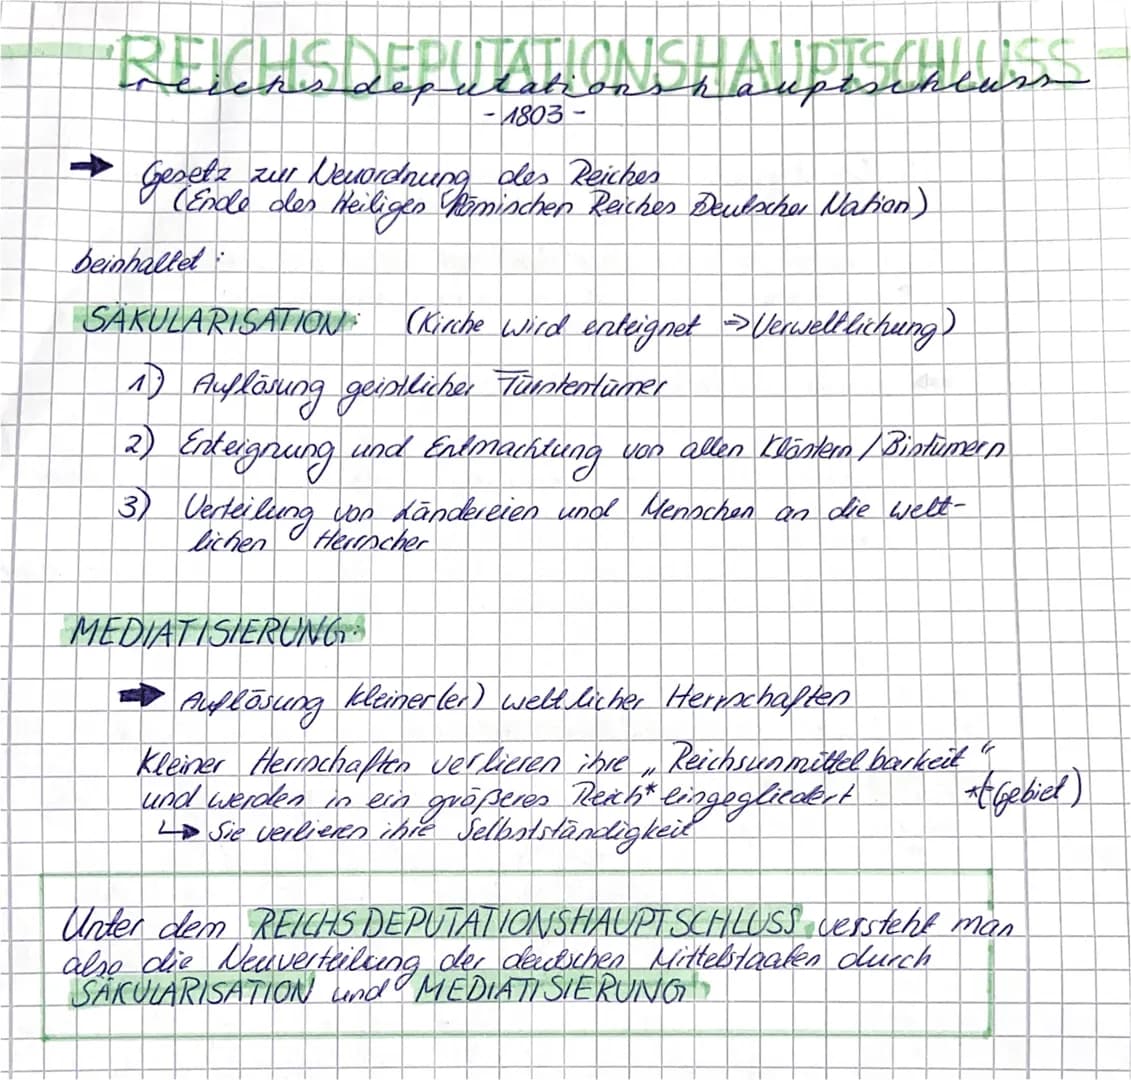 REICHSDEPUTATIONSHAUPTSCHLUSS
reichsdeputationshauptschluss
- 1803 -
➡ Gesetz zur Neuordnung des Reiches
(Ende des Heiligen Römischen Reiches Deutscher Nation)
beinhaltet :
SÄKULARISATION: (Kirche wird enteignet ⇒ Verweltlichung)
1) Auflösung geistlicher Fürstentümer
2) Enteignung und Entmachtung von allen Klöstern / Bistümern
3) Verteilung von Ländereien und Menschen an die welt-
lichen Herrscher
MEDIATISIERUNG:
➡ Auflösung kleiner(er) weltlicher Herrschaften
Kleiner Herrschaften verlieren ihre „Reichsunmittelbarkeit“
und werden in ein größeres Reich* eingegliedert *(Gebiet)
↳ Sie verlieren ihre Selbstständigkeit
Unter dem REICHSDEPUTATIONSHAUPTSCHLUSS versteht man
also die Neuverteilung der deutschen Mittelstaaten durch
SÄKULARISATION und MEDIATISIERUNG